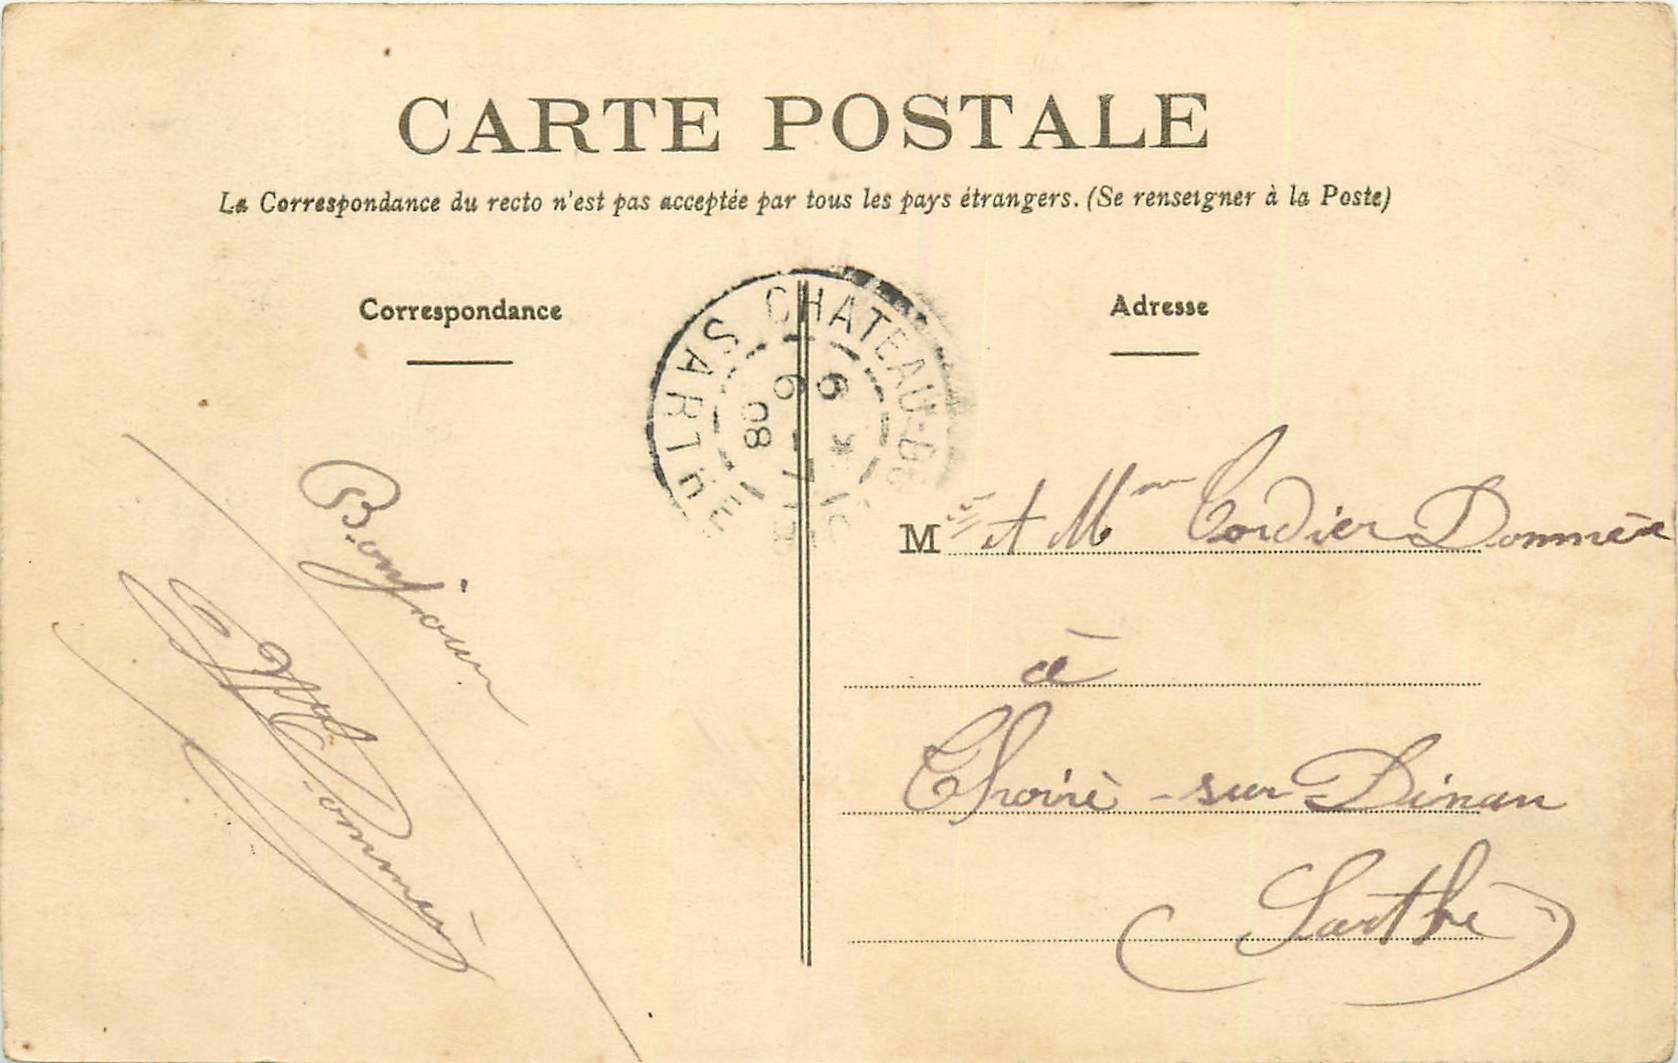 CARTE POSTALE
La Correspondance du recto n'est pas acceptée par tous les pays étrangers. (Se renseigner à la Poste)
Correspondance
Adresse
CHATEAU-DU
SARTHE
6 *
6 - 7
08
Bonjour
M et Mme Cordier Dommèe
à
Thoiré - sur - Dinan
Sarthe